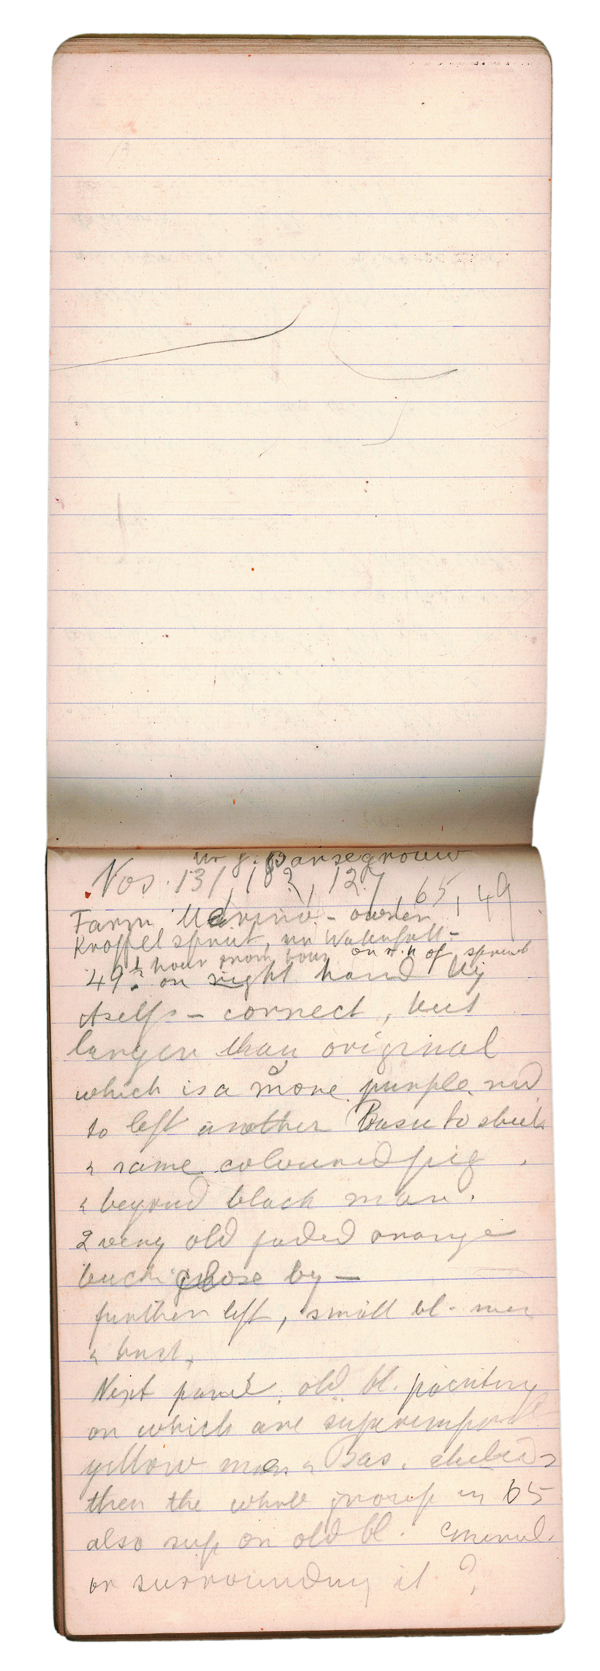 Nos. 131, 182, 127, 65, 49
Farm Merino - owner
Kroffel spruit, nr Waterfall -
½ hour from on r.h of spruit
49. on right hand by
itself - correct, but
larger than original
which is a more purple red
to left another Basuto shield
& same coloured pig
& beyond black man.
2 very old faded orange
bucks close by -
further left, small bl. man
& bust,
Next panel old bl. painting
on which are superimposed
yellow man & Bas. shields
then the whole group in 65
also sup on old bl.
or surrounding it ?